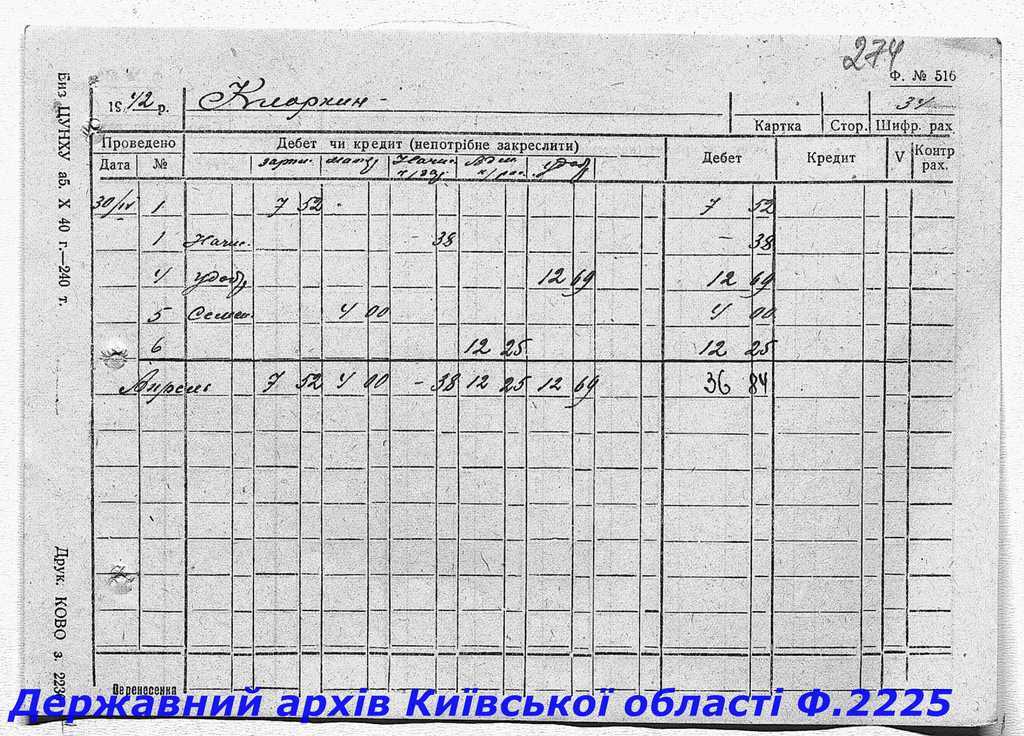 274
Ф. № 516
1942 р.
34
Картка Стор. Шифр. рах
Проведено Дебет чи кредит (непотрібне закреслити) Дебет Кредит V Контр рах.
Дата №
30/IV 1 7 52 7 52
1 - 38 - 38
4 удобр 12 69 12 69
5 Семен. 4 00 4 00
6 12 25 12 25
Апрель 7 52 4 00 - 38 12 25 12 69 36 84
Перенесення
Биз ЦУНХУ аб. X 40 г.—240 т.
Друк. КОВО з. 223
Державний архів Київської області Ф.2225